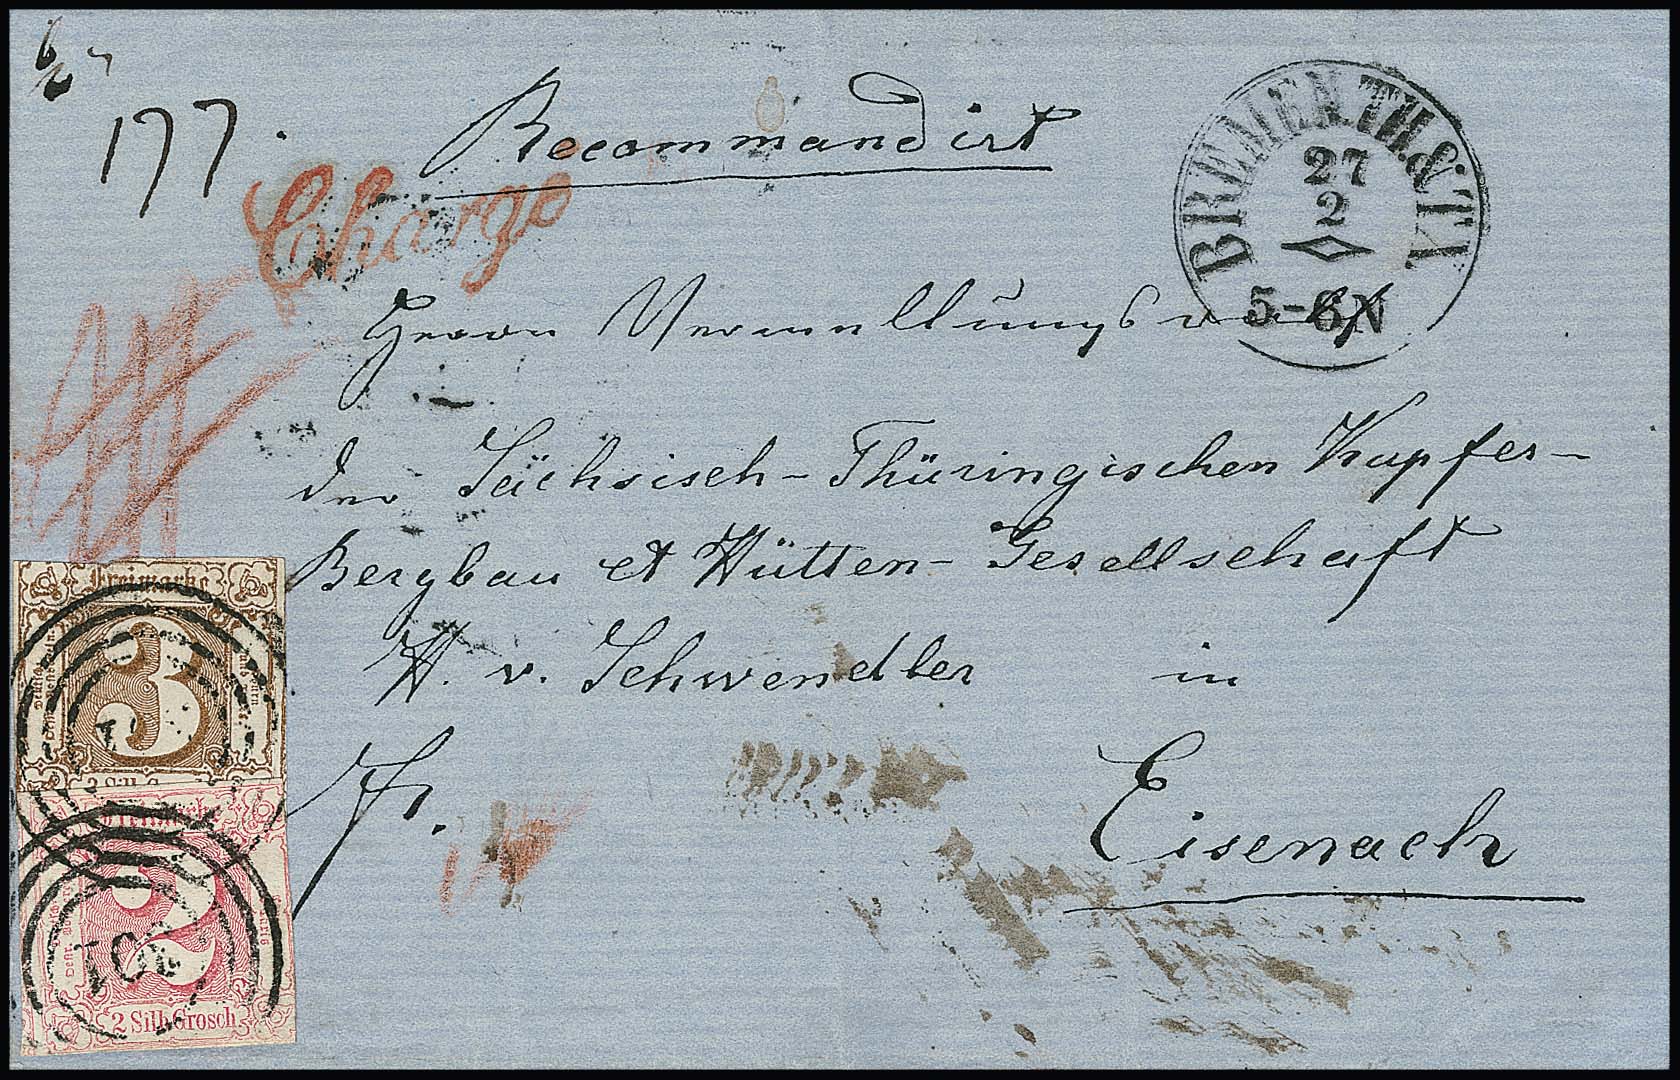 177.
Recommandirt
BREMEN.TH.&TX
27
2
5-6N
Chargé
Herrn Verwaltungsrath
der Sächsisch-Thüringischen Kupfer-
Bergbau et Hütten-Gesellschaft
H. v. Schwendler in
fr.
Eisenach
Freimarke
3
3 Silb.G
Freimarke
2
301
2 Silb.Grosch